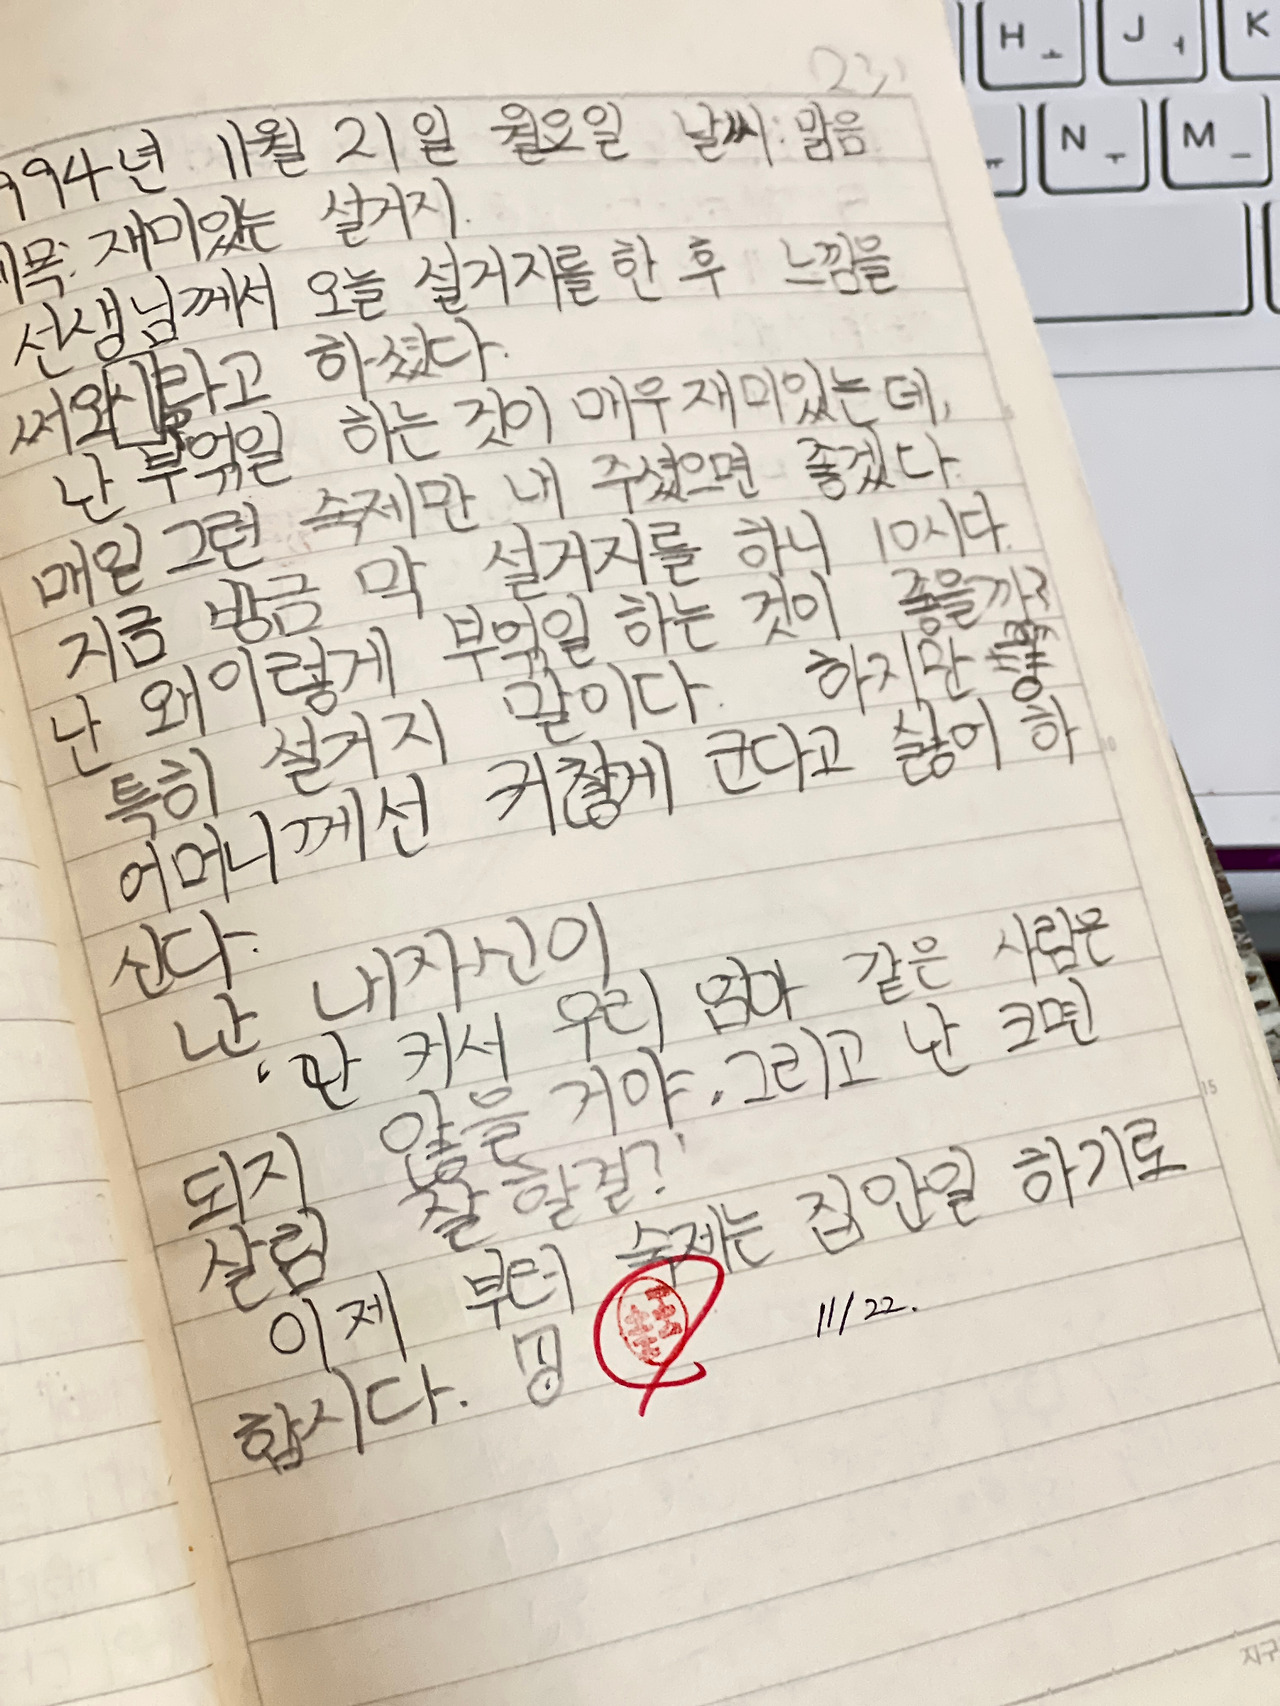 23
994년 11월 21일 월요일 날씨: 맑음
제목: 재미있는 설거지.
선생님께서 오늘 설거지를 한 후 느낌을
써와라고 하셨다.
난 부엌일 하는 것이 매우 재미있는데,
매일 그런 숙제만 내 주셨으면 좋겠다.
지금 방금 막 설거지를 하니 10시다.
난 왜 이렇게 부엌일 하는 것이 좋을까?
특히 설거지 말이다. 하지만
어머니께선 커찮게 군다고 싫어 하
신다.
난, 내자신이
'난 커서 우리 엄마 같은 사람은
되지 않을 거야. 그리고 난 크면
살림 잘 할걸?'
이제 부터 숙제는 집안일 하기로
합시다.
11/22.
H ㅗ
J ㅓ
K
N ㅜ
M ㅡ
5
10
15
지구